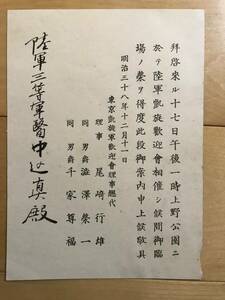 拜啓來ル十七日午後一時上野公園ニ
於テ陸軍凱旋歡迎會相催シ候間御臨
場ノ榮ヲ得度此段御案內申上候敬具
明治三十八年十二月十一日
東京凱旋軍歡迎會理事總代
理事 尾崎行雄
同 男爵 澁澤榮一
同 男爵 千家尊福
陸軍三等軍醫中辻真殿